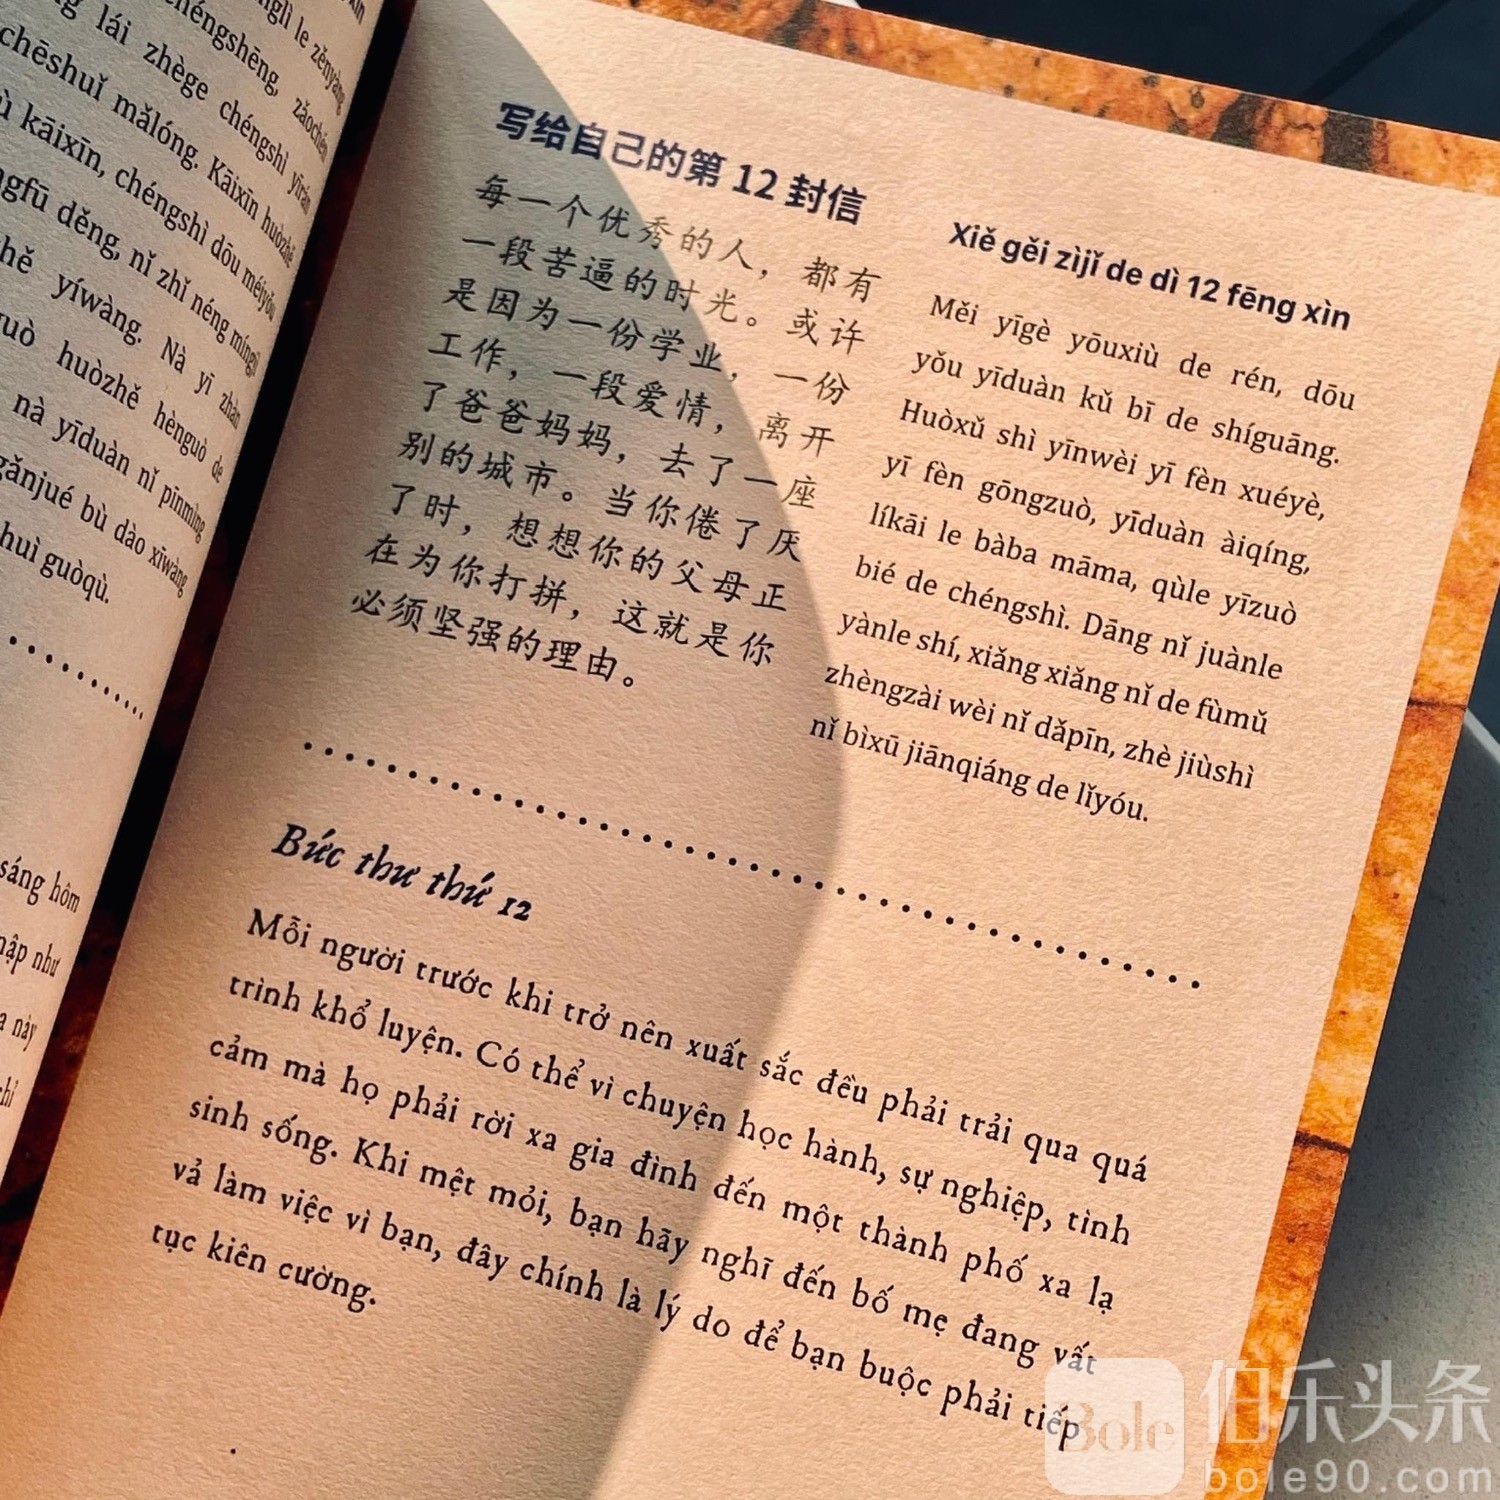 xìn
nglì le zěnyàng
chéngshēng, zǎochén
lái zhège chéngshì yīrán
chēshuǐ mǎlóng. Kāixīn huòzhě
kāixīn, chéngshì dōu méiyǒu
ngfū děng, nǐ zhǐ néng míngjì
yíwàng. Nà yī zhàn
guò huòzhě hènguò de
nà yīduàn nǐ pīnmìng
gǎnjué bù dào xīwàng
huì guòqù.
sáng hôm
nập như
a này
chỉ
写给自己的第 12 封信
每一个优秀的人，都有
一段苦逼的时光。或许
是因为一份学业，一份
工作，一段爱情，离开
了爸爸妈妈，去了一座
别的城市。当你倦了厌
了时，想想你的父母正
在为你打拼，这就是你
必须坚强的理由。
Xiě gěi zìjǐ de dì 12 fēng xìn
Měi yīgè yōuxiù de rén, dōu
yǒu yīduàn kǔ bī de shíguāng.
Huòxǔ shì yīnwèi yī fèn xuéyè,
yī fèn gōngzuò, yīduàn àiqíng,
líkāi le bàba māma, qùle yīzuò
bié de chéngshì. Dāng nǐ juànle
yànle shí, xiǎng xiǎng nǐ de fùmǔ
zhèngzài wèi nǐ dǎpīn, zhè jiùshì
nǐ bìxū jiānqiáng de lǐyóu.
Bức thư thứ 12
Mỗi người trước khi trở nên xuất sắc đều phải trải qua quá
trình khổ luyện. Có thể vì chuyện học hành, sự nghiệp, tình
cảm mà họ phải rời xa gia đình đến một thành phố xa lạ
sinh sống. Khi mệt mỏi, bạn hãy nghĩ đến bố mẹ đang vất
vả làm việc vì bạn, đây chính là lý do để bạn buộc phải tiếp
tục kiên cường.
Bole 伯乐头条
bole90.com